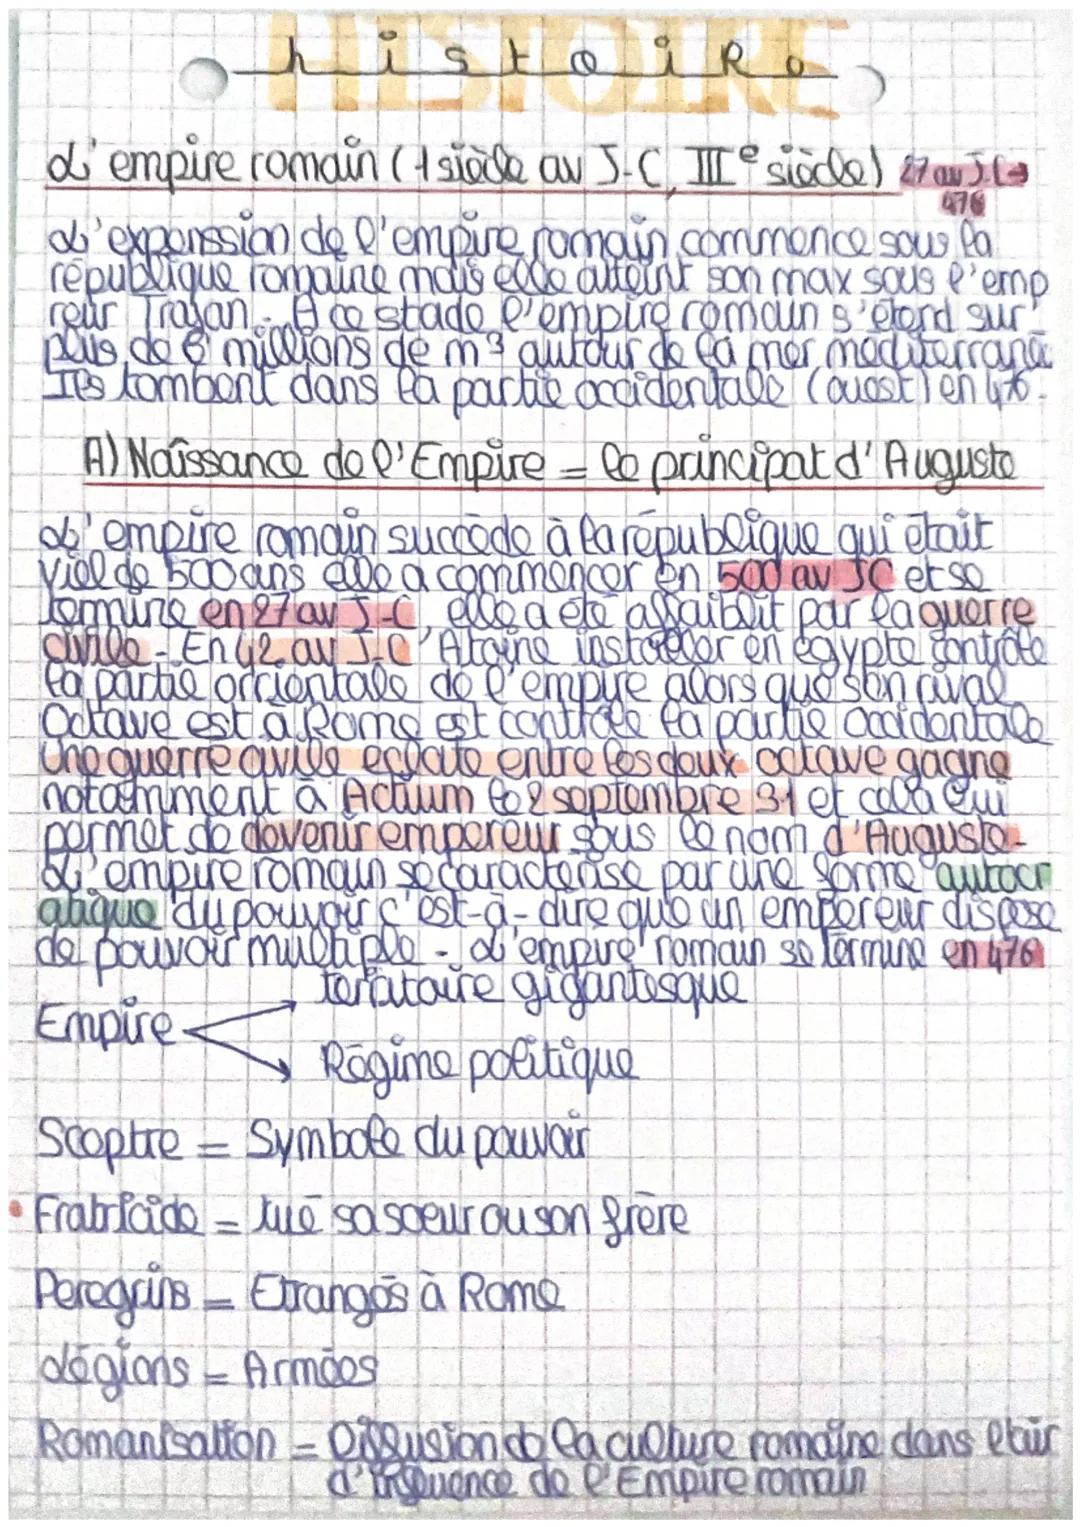 HISTOIRE
histoire
L'empire romain (1 siècle av J-C, IIIe siècle) 27 av J.C →
476
L'expenssion de l'empire romain commence sous la
république romaine mais elle atteint son max sous l'emp
reur Trajan. A ce stade l'empire romain s'étend sur
plus de 6 millions de m³ autour de la mer mediterrané
Ils tombent dans la partie occidentale (ouest) en 476.
A) Naissance de l'Empire = le principat d'Auguste
L'empire romain succède à la république qui était
viel de 500 ans elle a commencer en 500 av JC et se
termine en 27 av J-C, elle a été affaiblit par la guerre
civile. En 42 av J-C installer en égypte contrôle
la partie orrientale de l'empire alors que son rival
Octave est à Rome est contrôle la partie occidentale
une guerre civile eclate entre les deux octave gagne
notamment à Actium le 2 septembre 31 et cela lui
permet de devenir empereur sous le nom d'Auguste.
L'empire romain se caractérise par une forme autocr
atique du pouvoir c'est-à-dire que un empereur dispose
de pouvoir multiple. L'empire romain se termine en 476
territoire gigantesque
Empire
Régime politique
Sceptre = Symbole du pouvoir
Fratricide = tué sa soeur ou son frère
Peregrins = Etrangés à Rome
Légions = Armées
Romanisation = Diffusion de la culture romaine dans l'air
d'influence de l'Empire romain